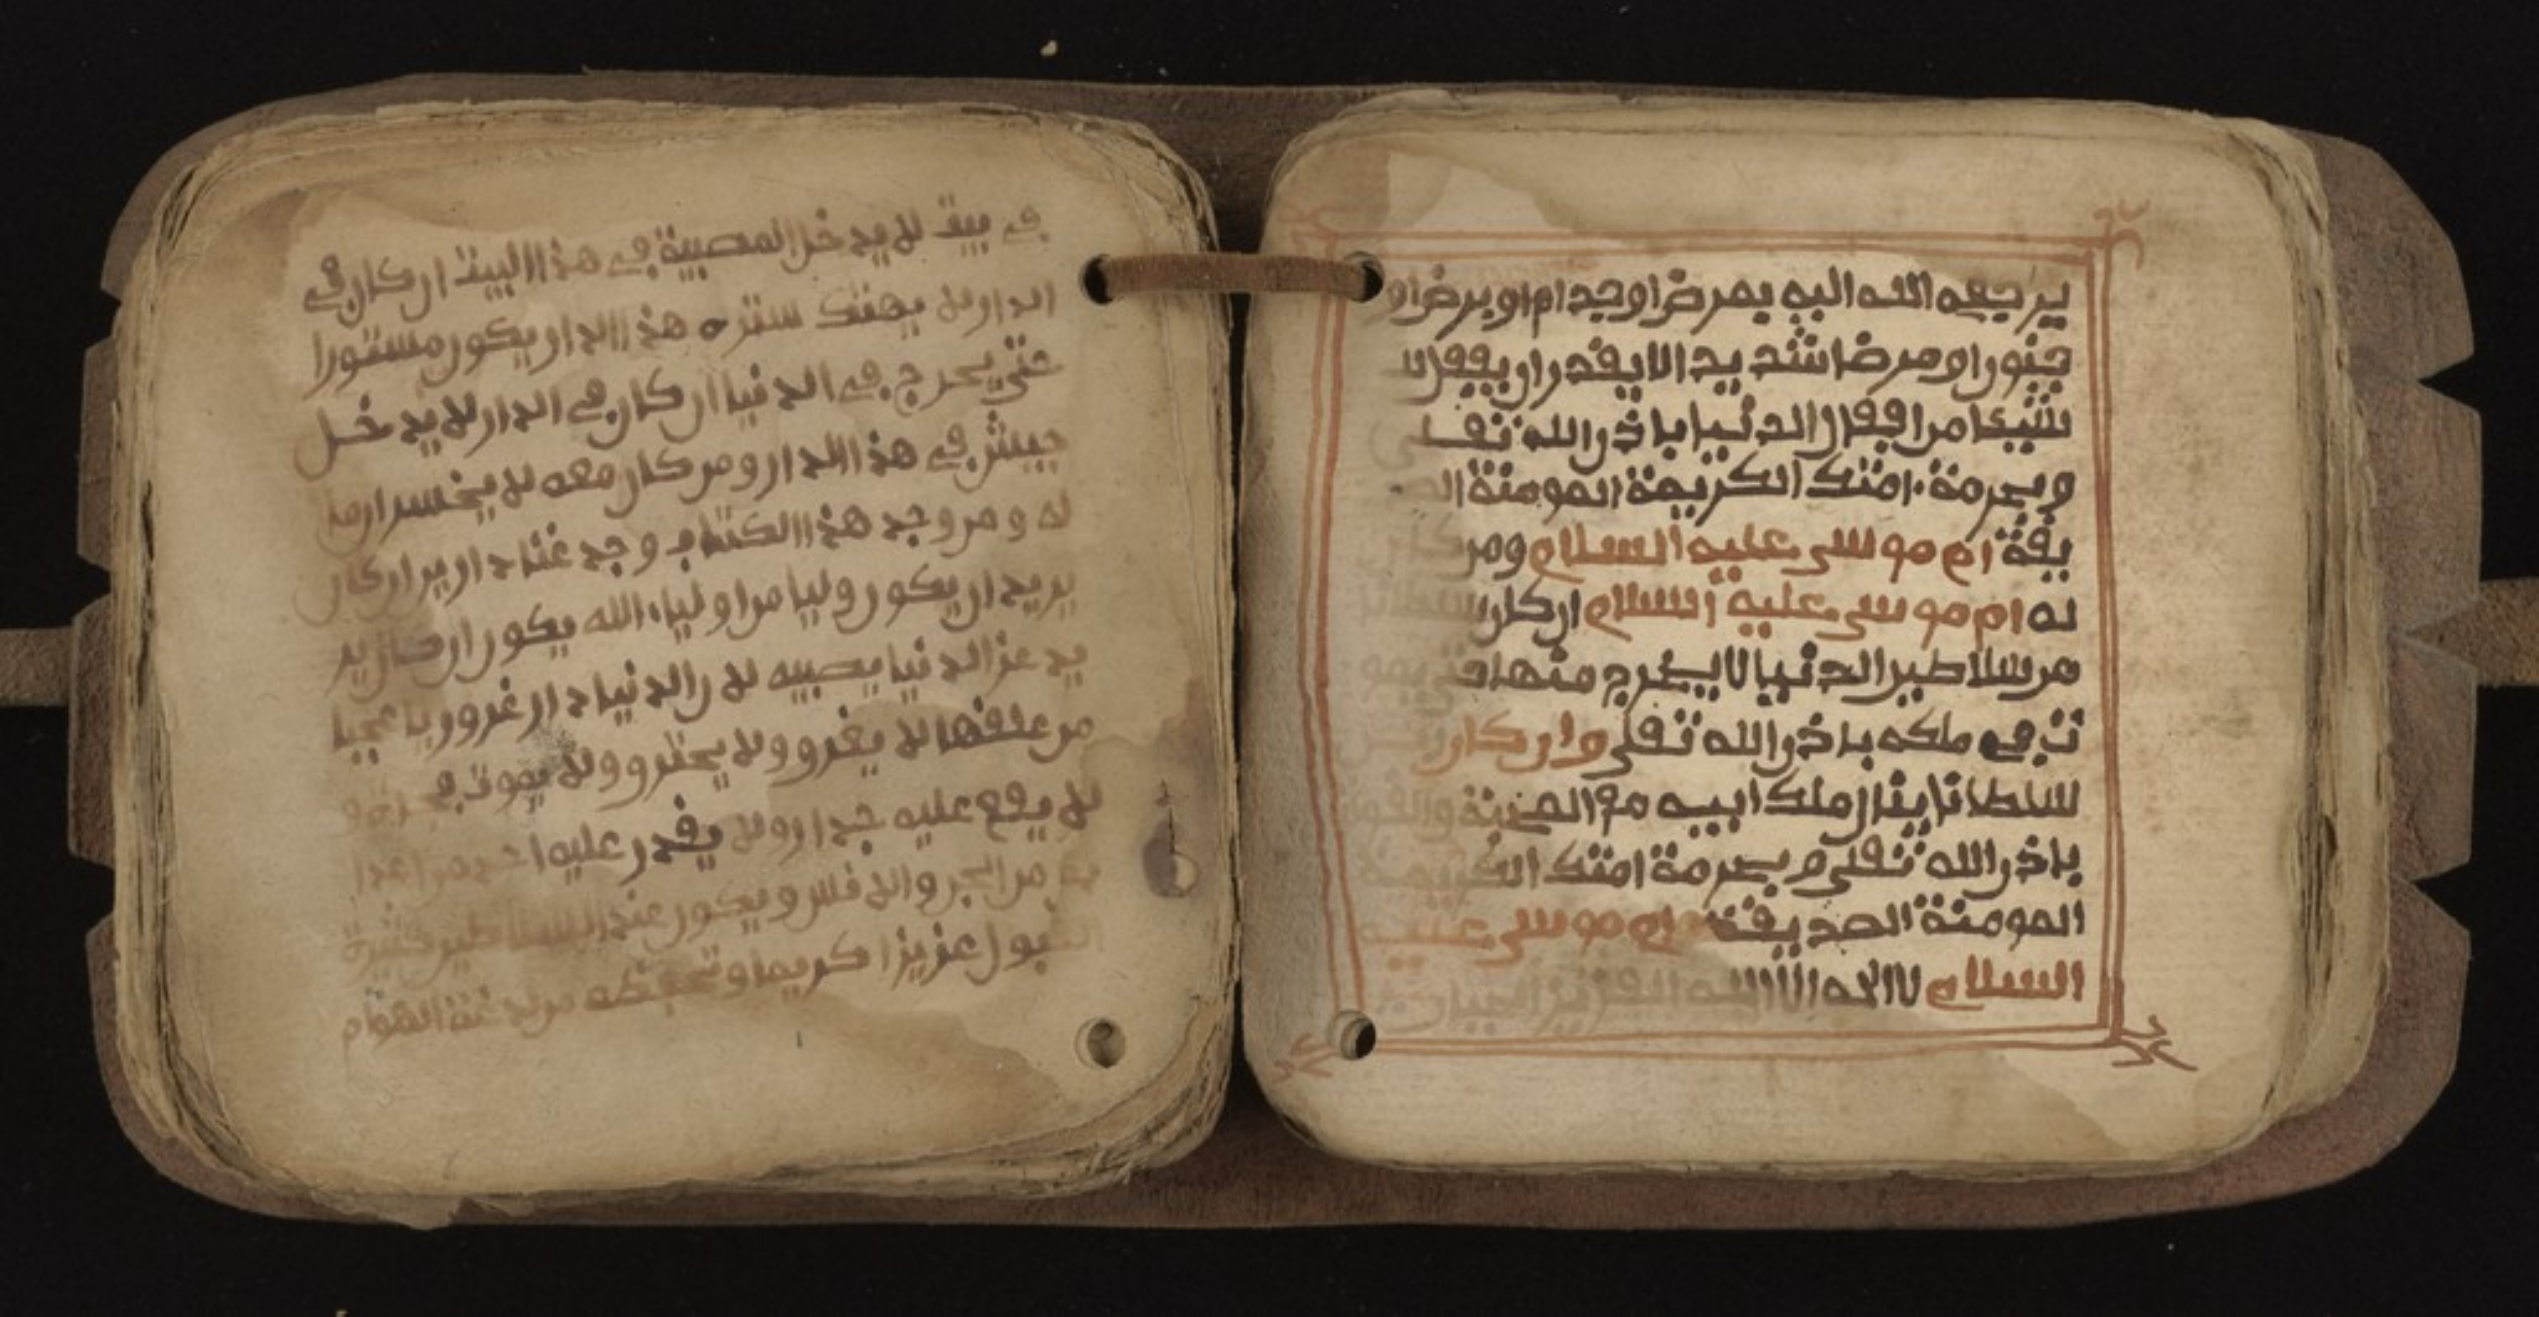 يرجعه الله اليه بمرض او جدام او برض او
جنون او مرضا شديدا لا يقدر ان يقفل
شيئا من اقفال الدنيا باذن الله تعلى
وبحرمة امتك الكريمة المومنة
يقة ام موسى عليه السلام ومن كان
له ام موسى عليه السلام ان كان
من سلاطين الدنيا لا يخرج منها حتى
في ملكه باذن الله تعلى وان كان
سلطانا ينال ملك ابيه
باذن الله تعلى وبحرمة امتك الكريمة
المومنة الصديقة ام موسى عليه
السلام لا اله الا الله العزيز الجبار
في بيت لا يدخل المصيبة في هذا البيت ان كان في
الدار لا يهتك ستره هذا الدار يكون مستورا
حتى يخرج في الدنيا ان كان في الدار لا يدخل
جيش في هذا الدار ومن كان معه لا يخسر
له ومن وجد هذا الكتاب وجد
يريد ان يكون وليا من اولياء الله يكون ان كان ير
يد عز الدنيا يصيبه لان الدنيا دار غرور يا عجبا
من علقها لا يغرو ولا يحترو ولا يموت
لا يقع عليه جدار ولا يقدر عليه احد من اعدا
من الجن والانس ويكون عند السلاطين كثيرة
القبول عزيزا كريما وتحفظه من لدغة الهوام